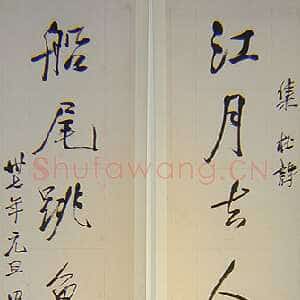 集杜诗
江月去人
船尾跳鱼
卅七年元旦
Shufawang.CN